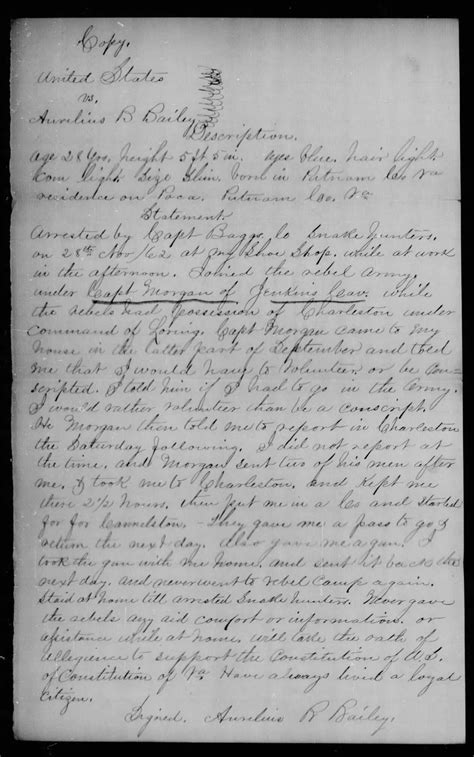 Copy.
United States
vs.
Aurelius B Bailey
Description.
Age 28 Yrs, height 5 ft 5 in. eyes blue, hair light
Com light Size Slim. born in Putnam Co. Va
residence on Poca. Putnam Co. Va
Statement
Arrested by Capt Baggs Co Snake Hunters.
on 28th Nov 62 at my Shoe Shop, while at work
in the afternoon. Joined the rebel Army.
under Capt Morgan of Jenkins Cav. while
the rebels had possession of Charleston under
command of Loring. Capt Morgan came to my
house in the latter part of September and told
me that I would have to Volunteer or be con-
scripted. I told him if I had to go in the Army.
I would rather volunteer than be a conscript.
He Morgan then told me to report in Charleston
the Saturday following. I did not report at
the time. and Morgan sent two of his men after
me. & took me to Charleston. and kept me
there 2 1/2 hours. then put me in a Co and started
for for Cannelton. - They gave me a pass to go &
return the next day. Also gave me a gun. I
took the gun with me home. and sent it back the
next day. and never went to rebel Camp again.
Staid at home till arrested Snake Hunters. Never gave
the rebels any aid comfort or information. or
assistance while at home. will take the oath of
allegience to support the Constitution of U.S.
of Constitution of Va. Have always been a loyal
Citizen.
Signed. Aurelius B Bailey.